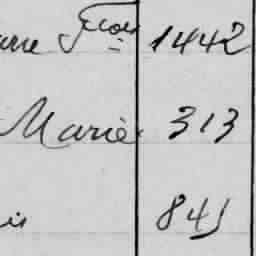 Fcois 1442
Marie 313
841